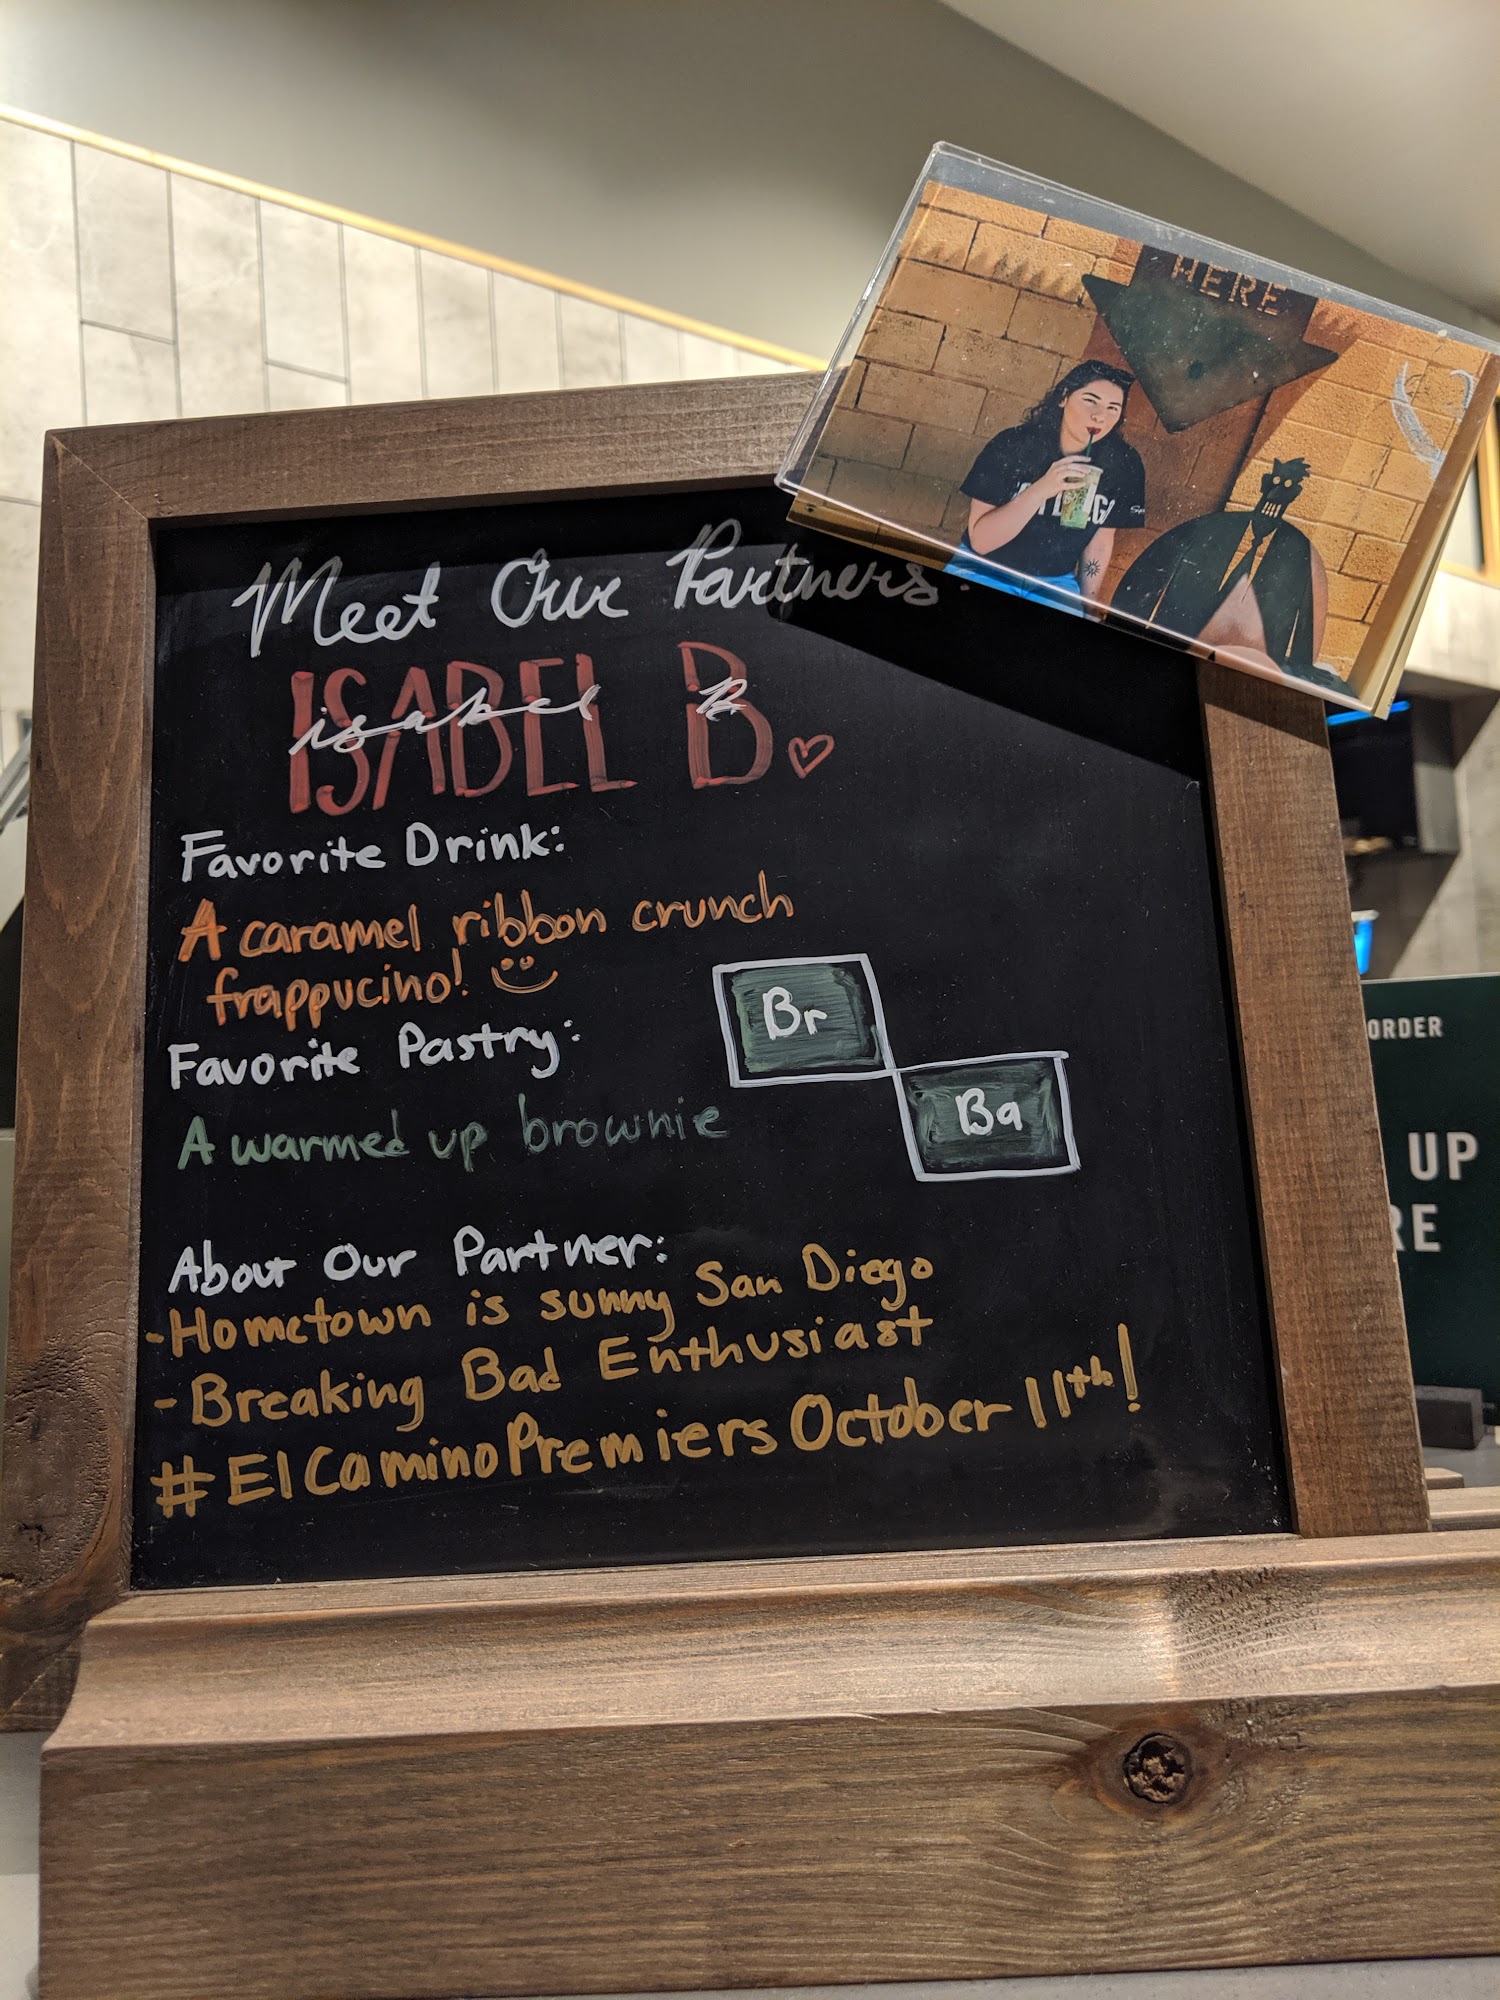 HERE
Meet Our Partners:
ISABEL B.
isabel B
Favorite Drink:
A caramel ribbon crunch
frappucino!
Favorite Pastry:
A warmed up brownie
Br
Ba
About Our Partner:
-Hometown is sunny San Diego
-Breaking Bad Enthusiast
#ElCaminoPremiersOctober 11th!
ORDER
UP